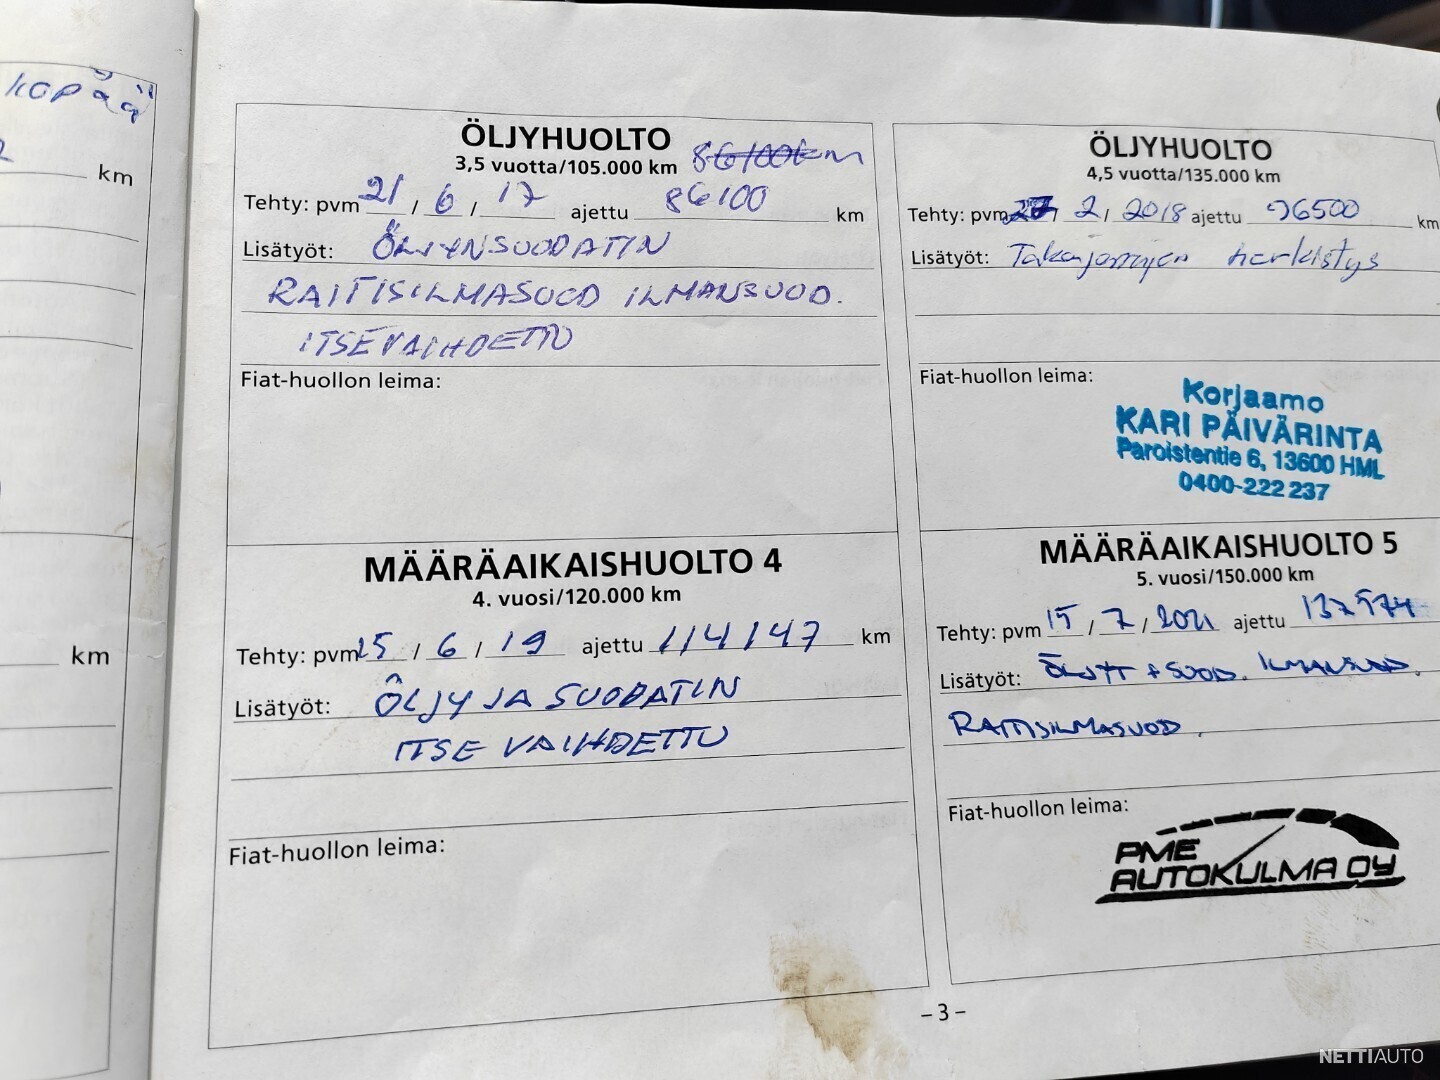 KOPÄÄ
km
km
ÖLJYHUOLTO
3,5 vuotta/105.000 km 86100km
Tehty: pvm 21 / 6 / 17 ajettu 86100 km
Lisätyöt: ÖLJYNSUODATIN
RAITISILMASUOD ILMANSUOD.
ITSE VAIHDETTU
Fiat-huollon leima:
MÄÄRÄAIKAISHUOLTO 4
4. vuosi/120.000 km
Tehty: pvm 25 / 6 / 19 ajettu 114147 km
Lisätyöt: ÖLJY JA SUODATIN
ITSE VAIHDETTU
Fiat-huollon leima:
ÖLJYHUOLTO
4,5 vuotta/135.000 km
Tehty: pvm / 2 / 2018 ajettu 96500 km
Lisätyöt: Takajarrujen herkistys
Fiat-huollon leima:
Korjaamo
KARI PÄIVÄRINTA
Paroistentie 6, 13600 HML
0400-222 237
MÄÄRÄAIKAISHUOLTO 5
5. vuosi/150.000 km
Tehty: pvm 15 / 7 / 2021 ajettu 137574
Lisätyöt: ÖLJYT + SUOD. ILMANSUOD.
RAITISILMASUOD.
Fiat-huollon leima:
PME
AUTOKULMA OY
– 3 –
NETTIAUTO